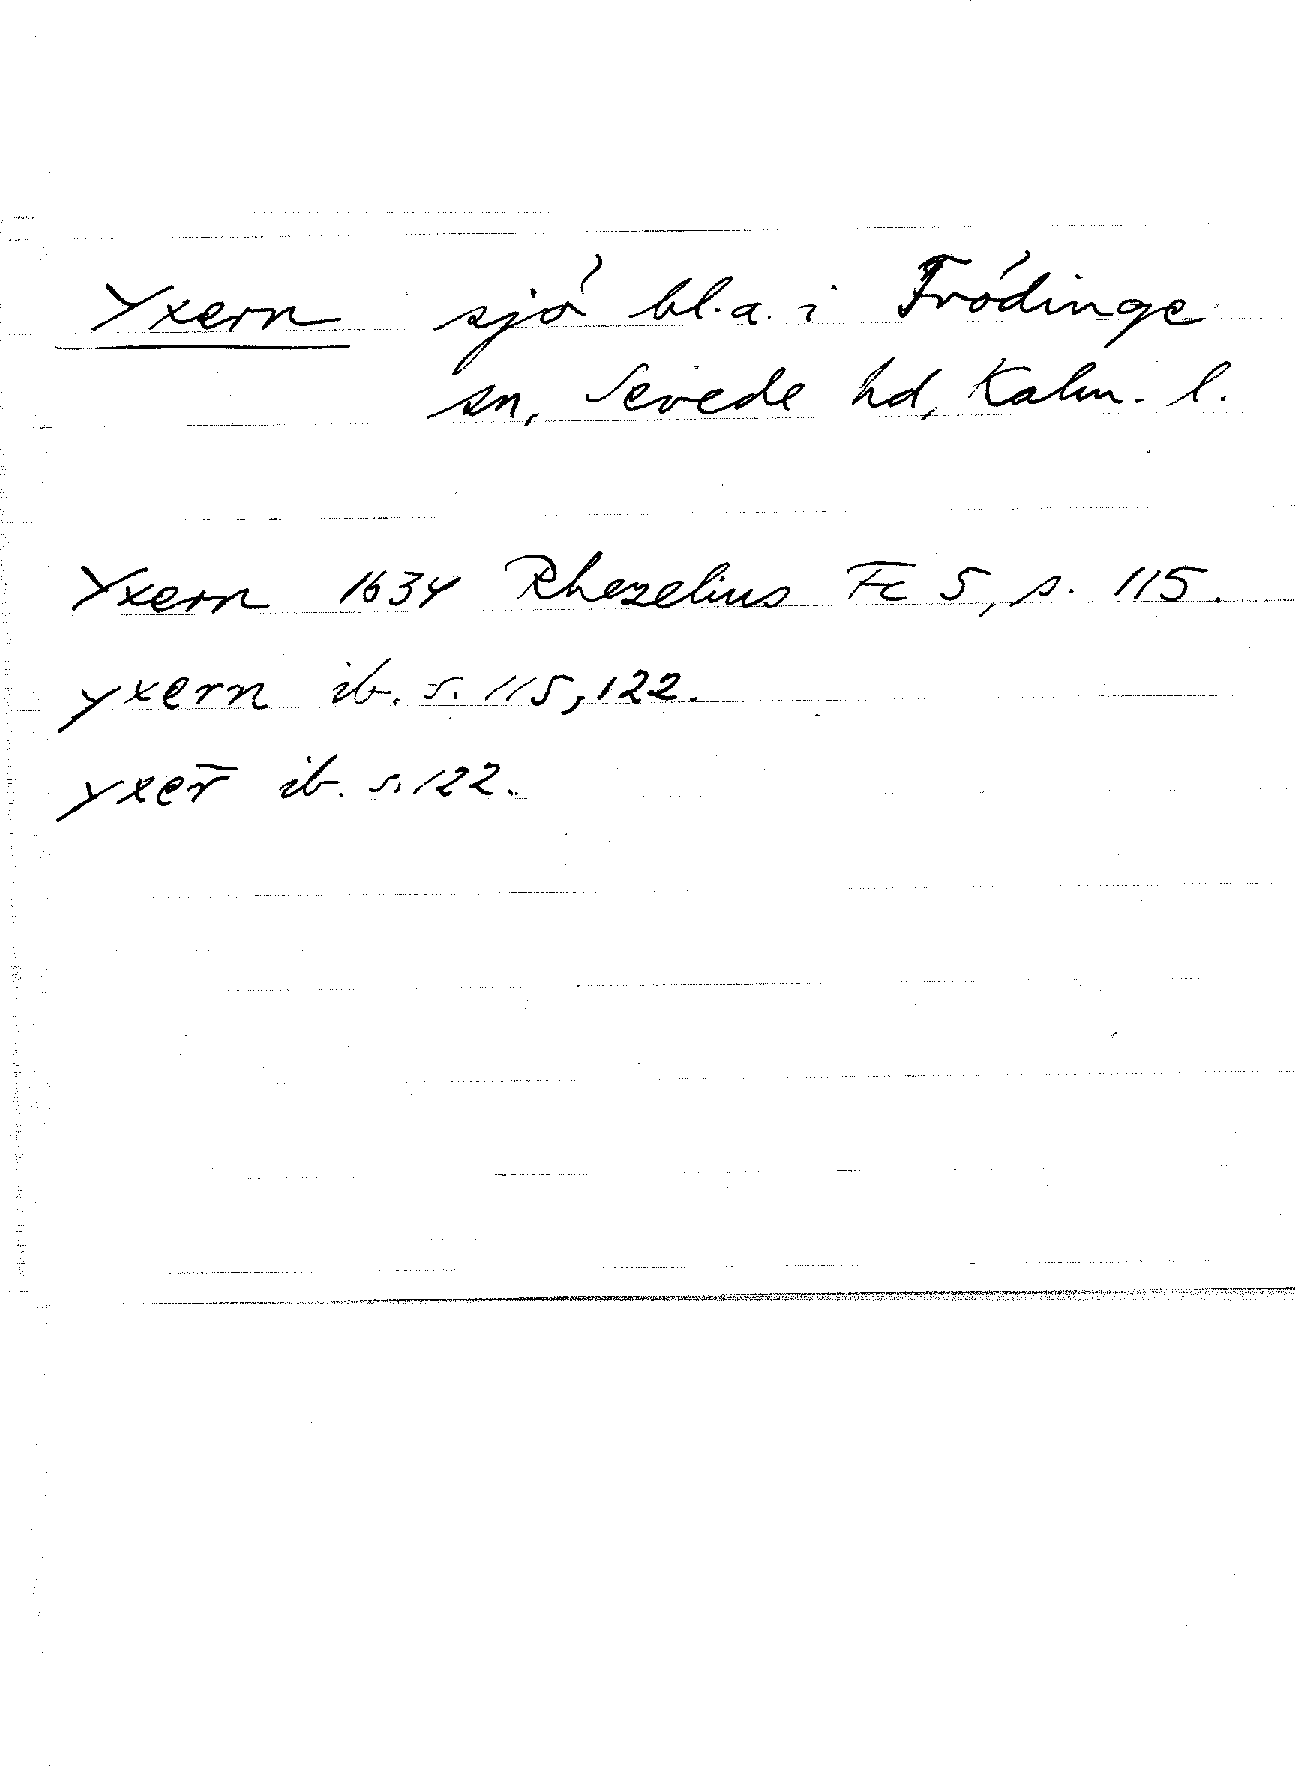 Yxern sjö bl.a. i Frödinge
sn, Sevede hd, Kalm. l.
Yxern 1634 Rhezelius Fc 5, s. 115.
yxern ib. s. 115, 122.
yxer̄ ib. s. 122.